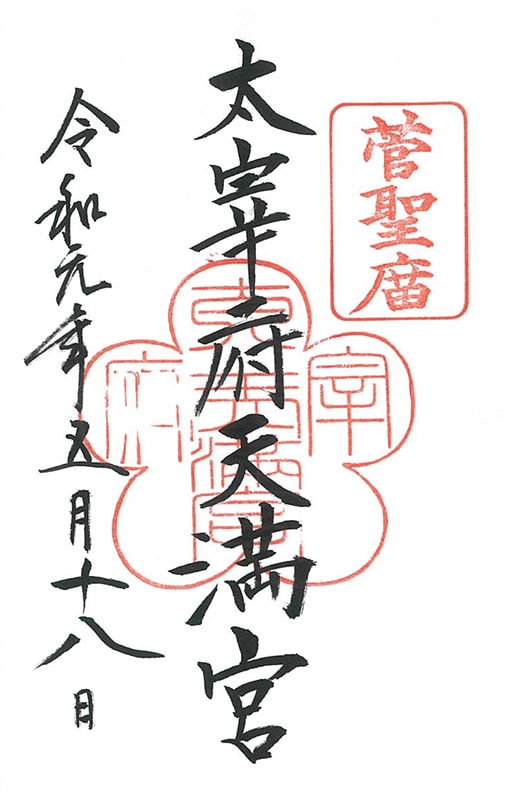 菅聖庿
太宰府天満宮
令和元年五月十八日